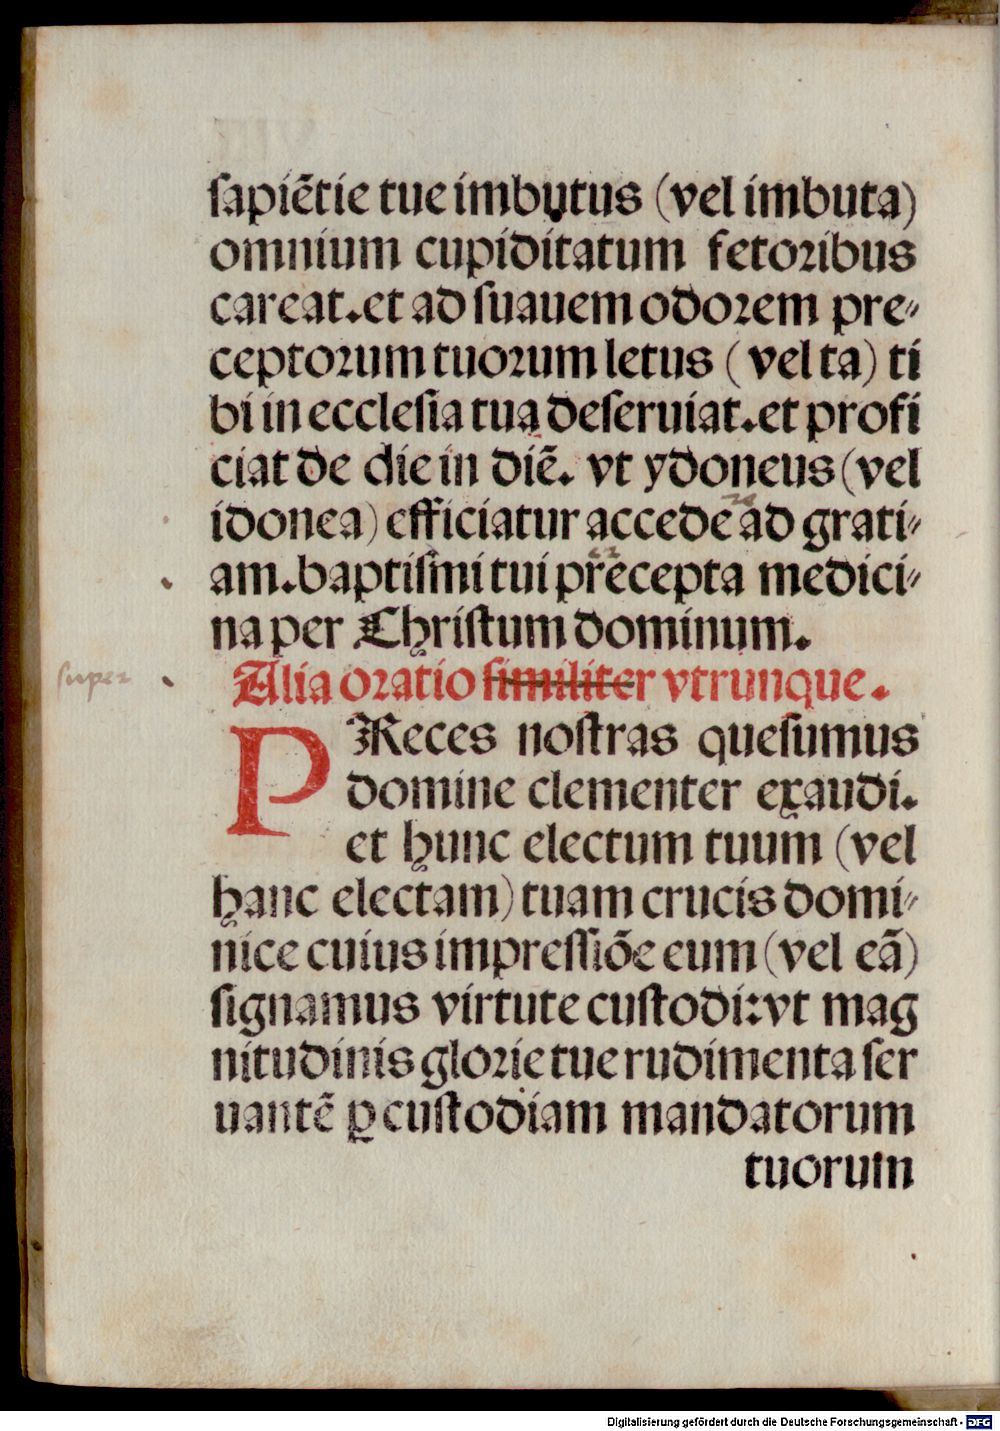 sapiẽtie tue imbutus (vel imbuta)
omnium cupiditatum fetoribus
careat. et ad suauem odorem pre-
ceptorum tuorum letus (vel ta) ti
bi in ecclesia tua deseruiat. et profi
ciat de die in diẽ. vt ydoneus (vel
idonea) efficiatur accede ad grati-
am. baptismi tui precepta medici-
na per Christum dominum.
super
Alia oratio similiter vtrunque.
PReces nostras quesumus
domine clementer exaudi.
et hunc electum tuum (vel
hanc electam) tuam crucis domi-
nice cuius impressiõe eum (vel eã)
signamus virtute custodi: vt mag
nitudinis glorie tue rudimenta ser
uantẽ ꝑ custodiam mandatorum
tuorum
Digitalisierung gefördert durch die Deutsche Forschungsgemeinschaft - DFG